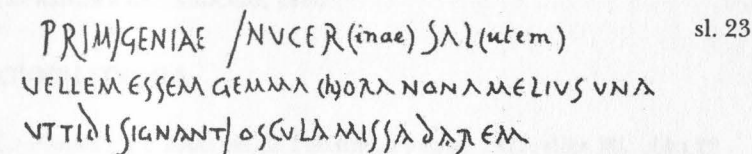 PRIMIGENIAE NVCER(inae) SAL(utem) sl. 23
VELLEM ESSEM GEMMA (h)ORA NON AMELIVS VNA
VT TIBI SIGNANTI OSCVLA MISSA DAREM